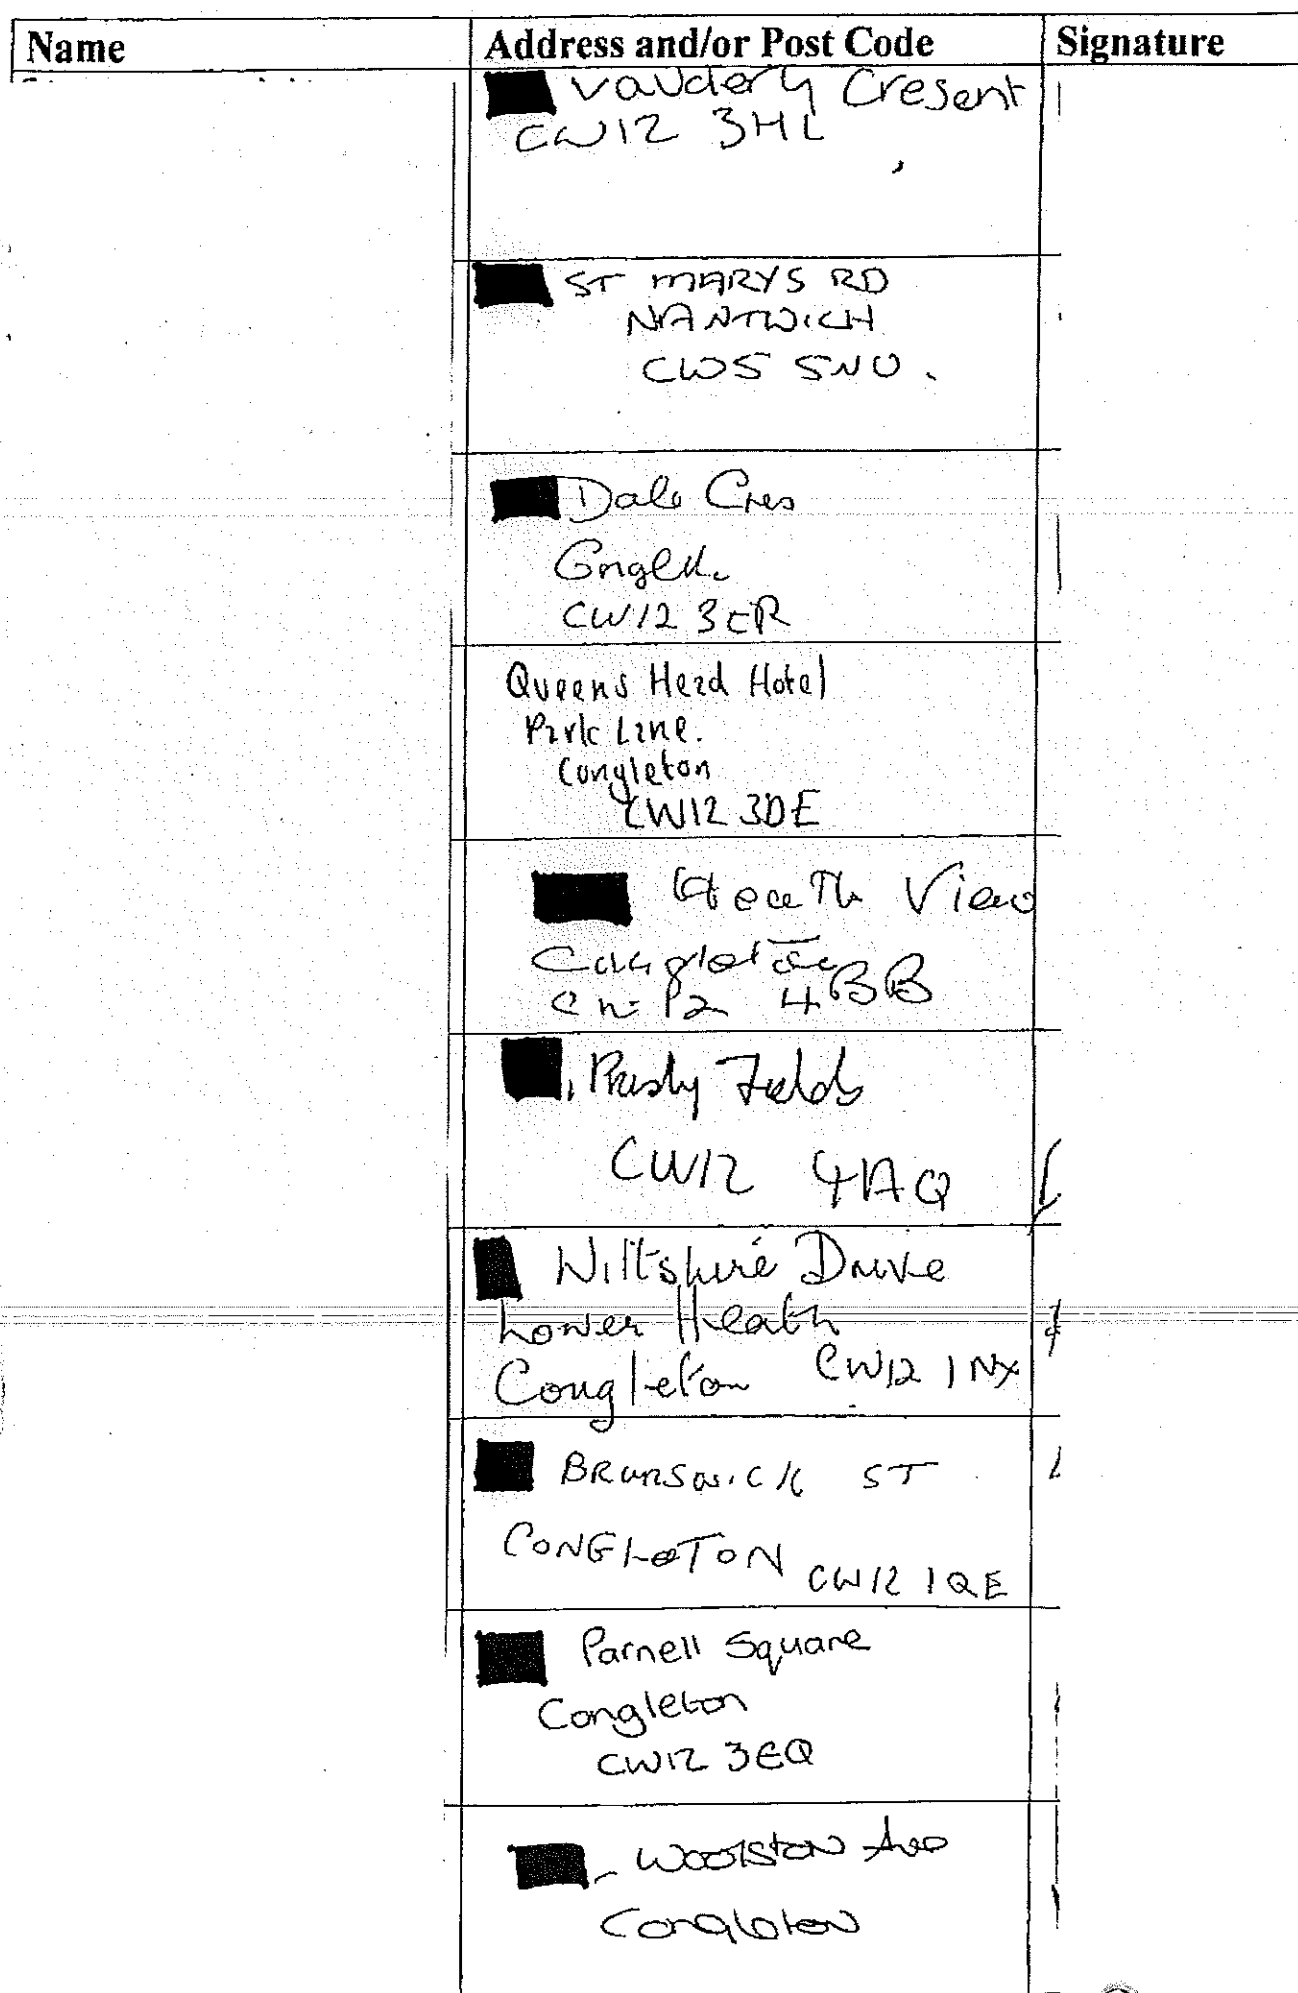 Name Address and/or Post Code Signature
Vaudery Cresent
CW12 3HL
ST MARYS RD
NANTWICH
CW5 5NU.
Dale Cres
CW12 3ER
Queens Head Hotel
Park Lane.
Congleton
CW12 3DE
Heath View
Congleton
CW12 4BB
Fields
CW12 4AQ
Wiltshire Drive
Lower Heath
Congleton CW12 1NX
BRUNSWICK ST
CONGLETON CW12 1QE
Parnell Square
Congleton
CW12 3EQ
Woolston Ave
Congleton